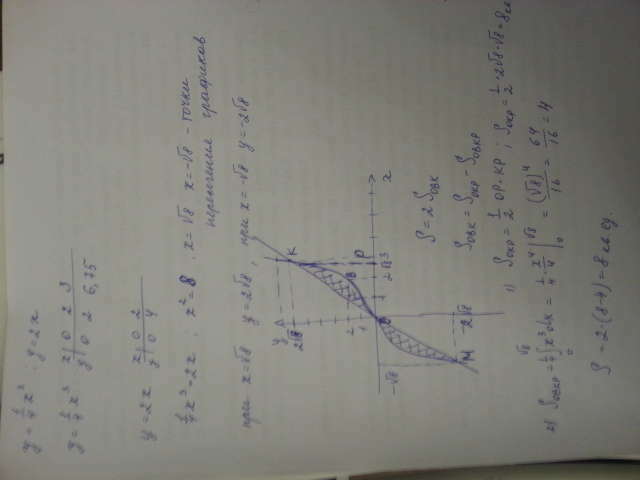 y = 1/4 x³ ; y = 2x
y = 1/4 x³   x | 0 2 3
y | 0 2 6,75
y = 2x   x | 0 2
y | 0 4
1/4 x³ = 2x ; x² = 8 ; x = √8 x = -√8 - точки
пересечения графиков
при x = √8 y = 2√8 , при x = -√8 y = -2√8
y
2√8
K
B
P
2
1
0
1
2
√8
3
x
-√8
-2√8
M
S = 2 Sовк
Sовк = Sокр - Sовкр
1) Sокр = 1/2 OP · KP ; Sокр = 1/2 · 2√8 · √8 = 8 кв
2) Sовкр = 1/4 ∫₀^√8 x³ dx = 1/4 · x⁴/4 |₀^√8 = (√8)⁴/16 = 64/16 = 4
S = 2·(8-4) = 8 кв ед.